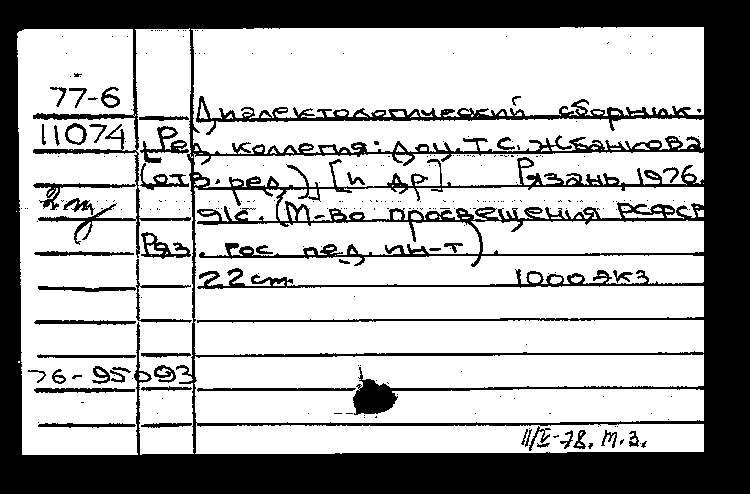 77-6
Диалектологический сборник.
11074 [Ред. коллегия: Доц. Т.С. Жбанкова
(отв. ред.)], [и др]. Рязань, 1976.
91с. (М-во просвещения РСФСР
Ряз. гос. пед. ин-т).
22 cm. 1000 экз
76-95093
II/V-78. т.з.